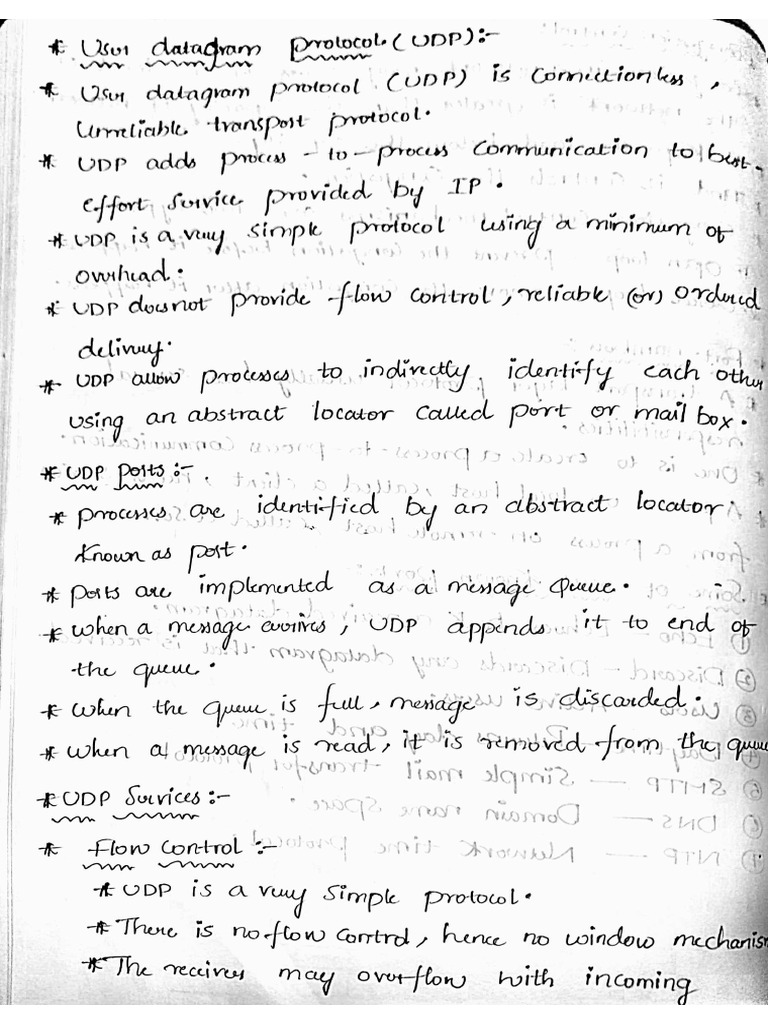 * User datagram protocol (UDP):-
* User datagram protocol (UDP) is Connectionless,
Unreliable transport protocol.
* UDP adds process-to-process communication to best-
effort service provided by IP.
* UDP is a very simple protocol using a minimum of
overhead.
* UDP doesnot provide flow control, reliable (or) ordered
delivery.
* UDP allow processes to indirectly identify each other
using an abstract locator called port or mail box.
* UDP ports:-
* processes are identified by an abstract locator
known as port.
* ports are implemented as a message queue.
* when a message arrives, UDP appends it to end of
the queue.
* when the queue is full, message is discarded.
* when a message is read, it is removed from the queue
* UDP Services:-
* Flow Control:-
* UDP is a very simple protocol.
* There is no flow control, hence no window mechanism
* The receiver may overflow with incoming